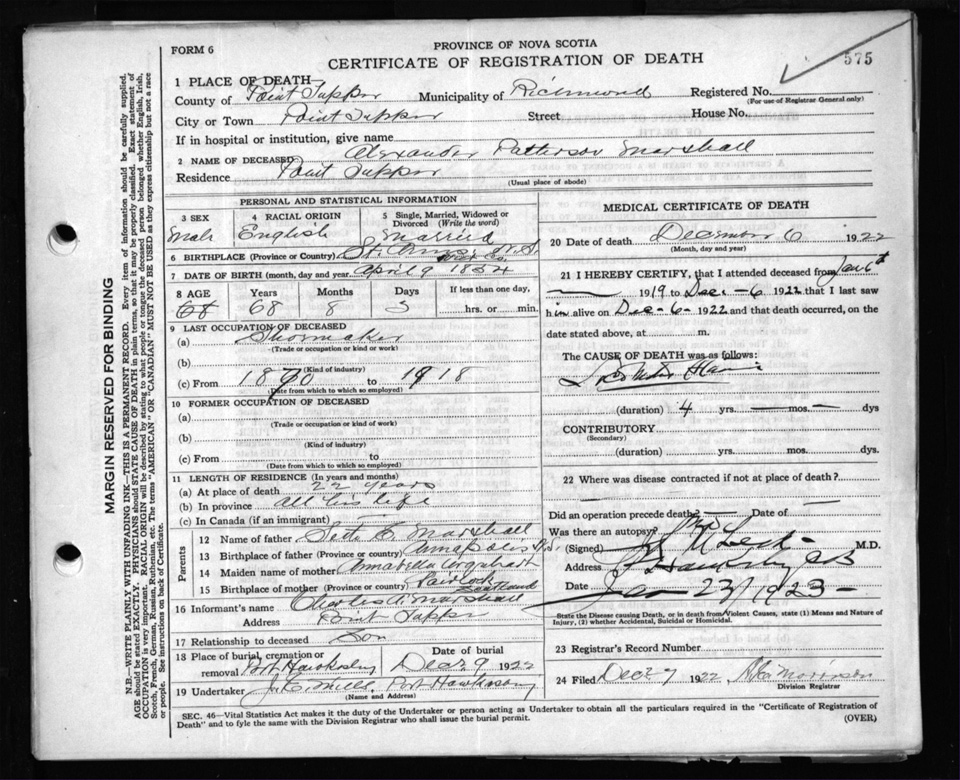 FORM 6
PROVINCE OF NOVA SCOTIA
CERTIFICATE OF REGISTRATION OF DEATH
575
1 PLACE OF DEATH
County of Point Tupper Municipality of Richmond Registered No.
(For use of Registrar General only)
City or Town Point Tupper Street House No.
If in hospital or institution, give name
2 NAME OF DECEASED Alexander Patterson Marshall
Residence Point Tupper
(Usual place of abode)
PERSONAL AND STATISTICAL INFORMATION
3 SEX 4 RACIAL ORIGIN 5 Single, Married, Widowed or Divorced (Write the word)
Male English Married
6 BIRTHPLACE (Province or Country) N.S.
7 DATE OF BIRTH (month, day and year) April 9 1854
8 AGE Years Months Days If less than one day,
68 68 8 hrs. or min.
9 LAST OCCUPATION OF DECEASED
(a) Shoemaker
(Trade or occupation or kind or work)
(b)
(Kind of industry)
(c) From 1890 to 1918
(Date from which to which so employed)
10 FORMER OCCUPATION OF DECEASED
(a)
(Trade or occupation or kind of work)
(b)
(Kind of industry)
(c) From to
(Date from which to which so employed)
11 LENGTH OF RESIDENCE (In years and months)
(a) At place of death 22 years
(b) In province all his life
(c) In Canada (if an immigrant)
Parents
12 Name of father Marshall
13 Birthplace of father (Province or country) Annapolis
14 Maiden name of mother Annabella Urquhart
15 Birthplace of mother (Province or country) Scotland
16 Informant's name Charles Marshall
Address Point Tupper
17 Relationship to deceased Son
18 Place of burial, cremation or removal Port Hawkesbury Date of burial Dec 9 1922
19 Undertaker Port Hawkesbury
(Name and Address)
MEDICAL CERTIFICATE OF DEATH
20 Date of death December 6 1922
(Month, day and year)
21 I HEREBY CERTIFY, that I attended deceased from Jan 6th
1919 to Dec - 6 1922 that I last saw
him alive on Dec - 6 - 1922 and that death occurred, on the
date stated above, at m.
The CAUSE OF DEATH was as follows:
(duration) 4 yrs. mos. dys
CONTRIBUTORY
(Secondary)
(duration) yrs. mos. dys.
22 Where was disease contracted if not at place of death?
Did an operation precede death? Date of
Was there an autopsy? no
(Signed) M.D.
Address
Date Jan 23/1923
State the Disease causing Death, or in death from Violent Causes, state (1) Means and Nature of
Injury, (2) whether Accidental, Suicidal or Homicidal.
23 Registrar's Record Number
24 Filed Dec 9 1922
Division Registrar
SEC. 46—Vital Statistics Act makes it the duty of the Undertaker or person acting as Undertaker to obtain all the particulars required in the "Certificate of Registration of
Death" and to fyle the same with the Division Registrar who shall issue the burial permit.
(OVER)
MARGIN RESERVED FOR BINDING
N.B.—WRITE PLAINLY WITH UNFADING INK—THIS IS A PERMANENT RECORD. Every item of information should be carefully supplied.
AGE should be stated EXACTLY. PHYSICIANS should STATE CAUSE OF DEATH in plain terms, so that it may be properly classified. Exact statement of
OCCUPATION is very important. RACIAL ORIGIN will be described by stating to what people or tongue the deceased person belonged whether English, Irish,
Scotch, French, German, Russian, Ruthenian, etc. The terms "AMERICAN" or "CANADIAN" MUST NOT BE USED as they express citizenship but not a race
or people. See instructions on back of Certificate.